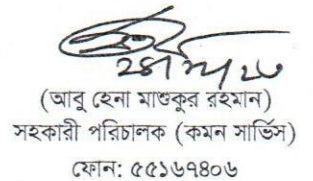 (আবু হেনা মাশুকুর রহমান)
সহকারী পরিচালক (কমন সার্ভিস)
ফোন: ৫৫১৬৭৪০৬